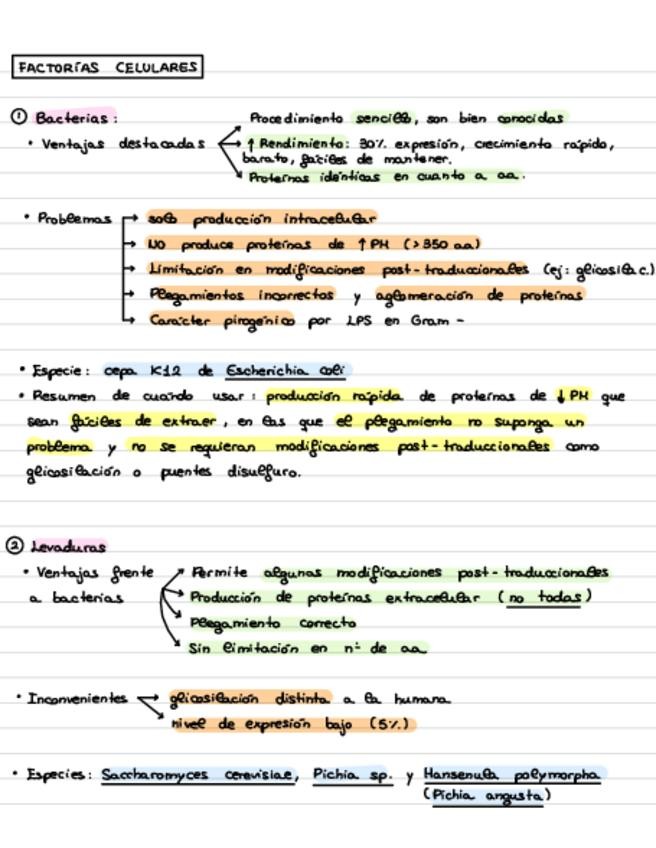 FACTORÍAS CELULARES
① Bacterias:
Procedimiento sencillo, son bien conocidas
• Ventajas destacadas → ↑ Rendimiento: 30% expresión, crecimiento rápido,
barato, fáciles de mantener.
Proteínas idénticas en cuanto a aa.
• Problemas → solo producción intracelular
→ No produce proteínas de ↑ PM (>350 aa)
→ Limitación en modificaciones post-traduccionales (ej: glicosilac.)
→ Plegamientos incorrectos y aglomeración de proteínas
→ Carácter pirogénico por LPS en Gram -
• Especie: cepa K12 de Escherichia coli
• Resumen de cuándo usar: producción rápida de proteínas de ↓ PM que
sean fáciles de extraer, en las que el plegamiento no suponga un
problema y no se requieran modificaciones post-traduccionales como
glicosilación o puentes disulfuro.
② Levaduras
• Ventajas frente → Permite algunas modificaciones post-traduccionales
a bacterias → Producción de proteínas extracelular (no todas)
→ Plegamiento correcto
→ Sin limitación en nº de aa
• Inconvenientes → glicosilación distinta a la humana
→ nivel de expresión bajo (5%)
• Especies: Saccharomyces cerevisiae, Pichia sp. y Hansenula polymorpha
(Pichia angusta)